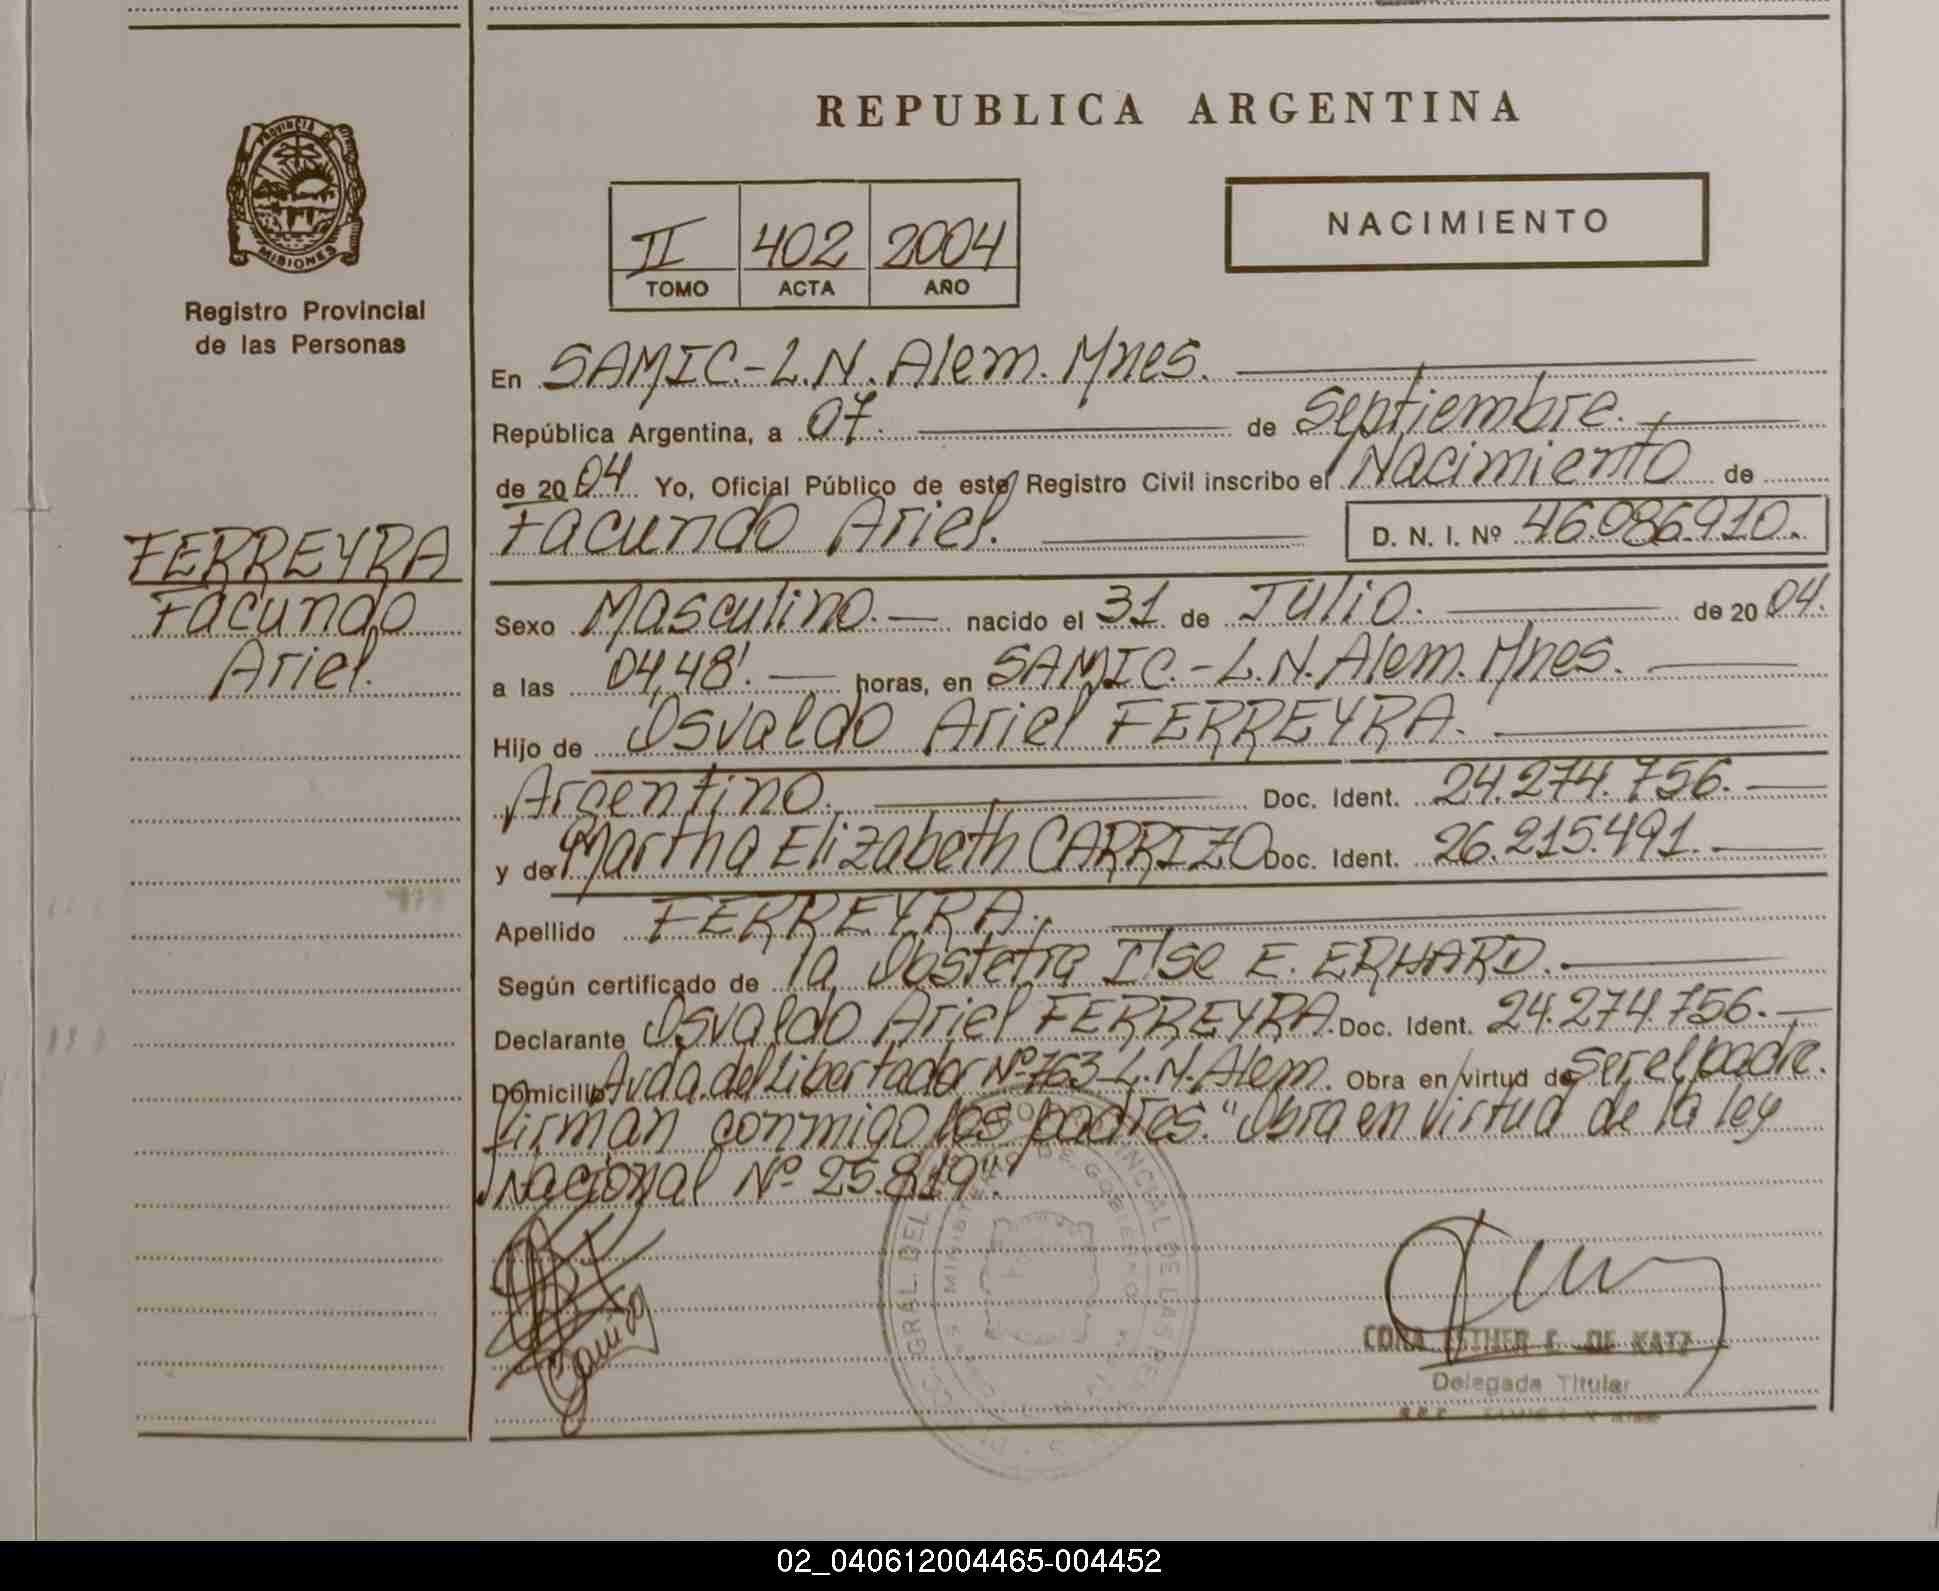 REPUBLICA ARGENTINA
PROVINCIA DE
MISIONES
Registro Provincial
de las Personas
II 402 2004
TOMO ACTA AÑO
NACIMIENTO
En SAMIC.-L.N. Alem. Mnes.
República Argentina, a 07. de Septiembre.
de 2004 Yo, Oficial Público de este Registro Civil inscribo el Nacimiento de
Facundo Ariel. D. N. I. Nº 46.086.910.
FERREYRA
Facundo
Ariel.
Sexo Masculino. nacido el 31 de Julio. de 2004.
a las 04,48'. horas, en SAMIC.-L.N. Alem. Mnes.
Hijo de Osvaldo Ariel FERREYRA.
Argentino. Doc. Ident. 24.274.756.
y de Martha Elizabeth CARRIZO Doc. Ident. 26.215.491.
Apellido FERREYRA.
Según certificado de la Obstetra Ilse E. ERHARD.
Declarante Osvaldo Ariel FERREYRA. Doc. Ident. 24.274.756.
Domicilio Avda. del Libertador Nº 763-L.N. Alem. Obra en virtud de ser el padre.
Firman conmigo los padres. "Obra en virtud de la ley
Nacional Nº 25.819".
MINISTERIO DE GOBIERNO
CORA ESTHER C. DE KATZ
Delegada Titular
02_040612004465-004452